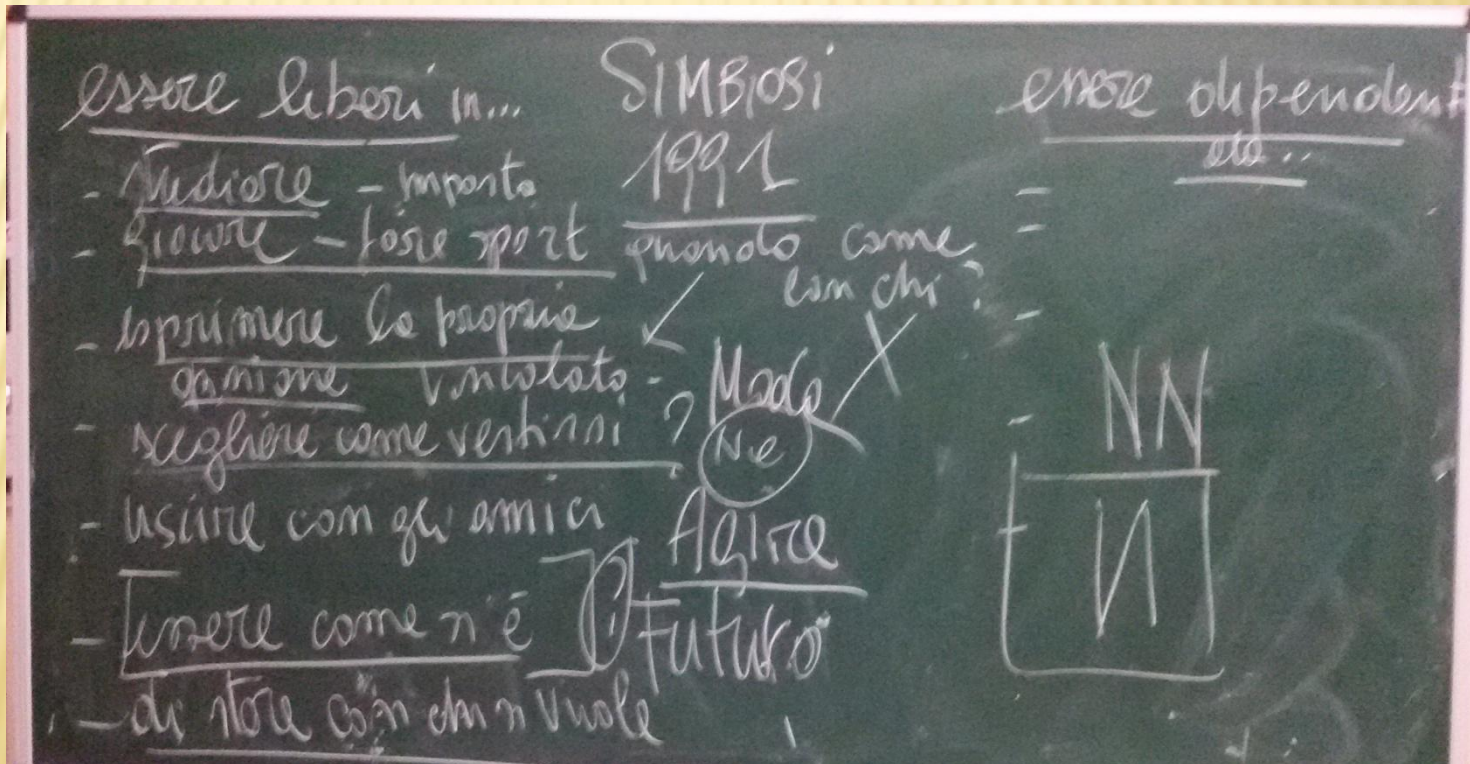 essere liberi in...
- studiare - imposto
- giocare - fare sport quando come con chi?
- esprimere la propria
opinione vincolato -
- scegliere come vestirsi ?
- uscire con gli amici
- [essere come si è ]
- di stare con chi si vuole
SIMBIOSI
1991
Moda
N.e
Agire
Futuro
essere dipendenti
da..
-
-
-
-
-
NN
N